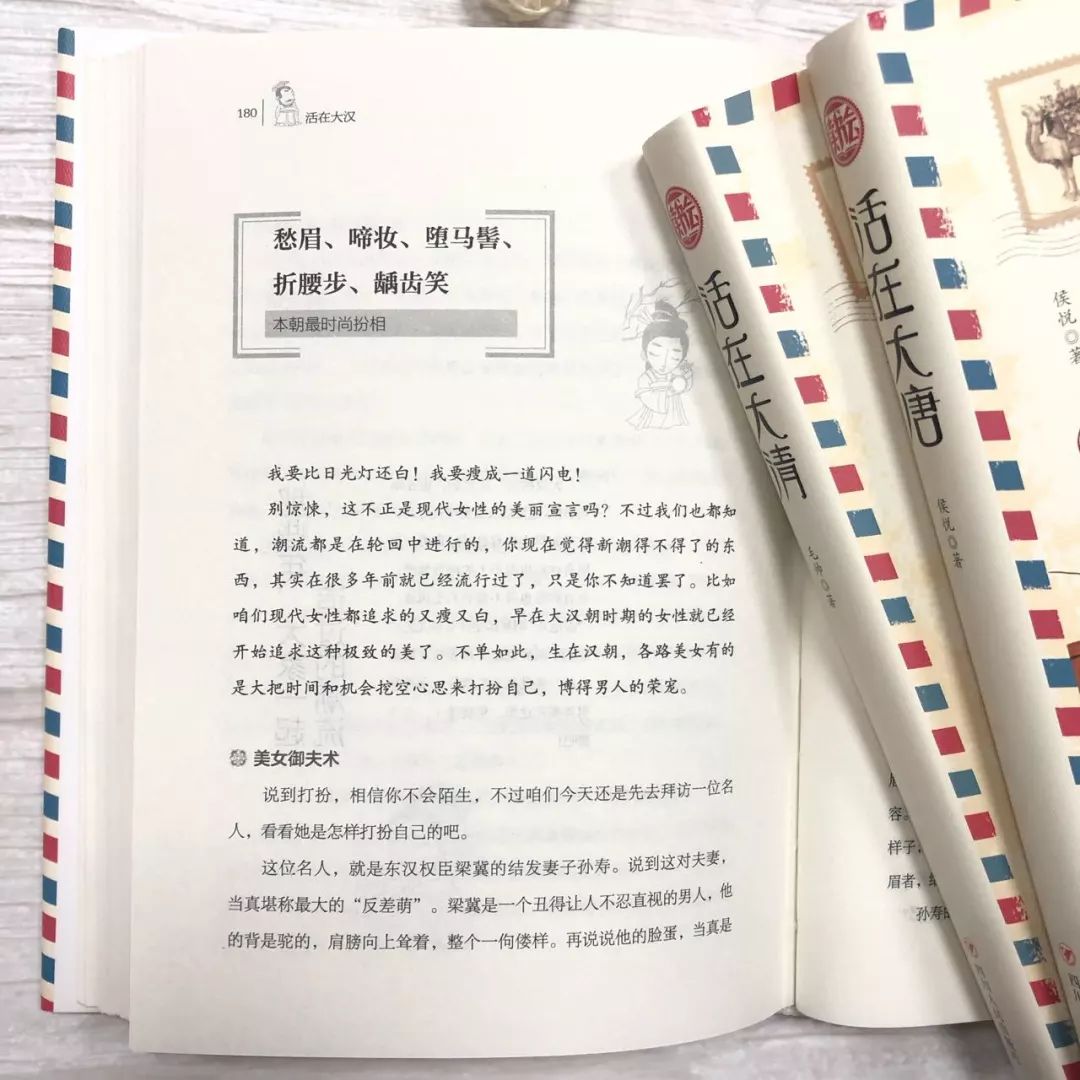 180
活在大汉
愁眉、啼妆、堕马髻、
折腰步、龋齿笑
本朝最时尚扮相
我要比日光灯还白！我要瘦成一道闪电！
别惊悚，这不正是现代女性的美丽宣言吗？不过我们也都知
道，潮流都是在轮回中进行的，你现在觉得新潮得不得了的东
西，其实在很多年前就已经流行过了，只是你不知道罢了。比如
咱们现代女性都追求的又瘦又白，早在大汉朝时期的女性就已经
开始追求这种极致的美了。不单如此，生在汉朝，各路美女有的
是大把时间和机会挖空心思来打扮自己，博得男人的荣宠。
美女御夫术
说到打扮，相信你不会陌生，不过咱们今天还是先去拜访一位名
人，看看她是怎样打扮自己的吧。
这位名人，就是东汉权臣梁冀的结发妻子孙寿。说到这对夫妻，
当真堪称最大的“反差萌”。梁冀是一个丑得让人不忍直视的男人，他
的背是驼的，肩膀向上耸着，整个一佝偻样。再说说他的脸蛋，当真是
容。
样子，
眉者，
孙寿的
活在大清
毛帅◎著
活在大唐
侯悦◎著
侯悦◎著
四川